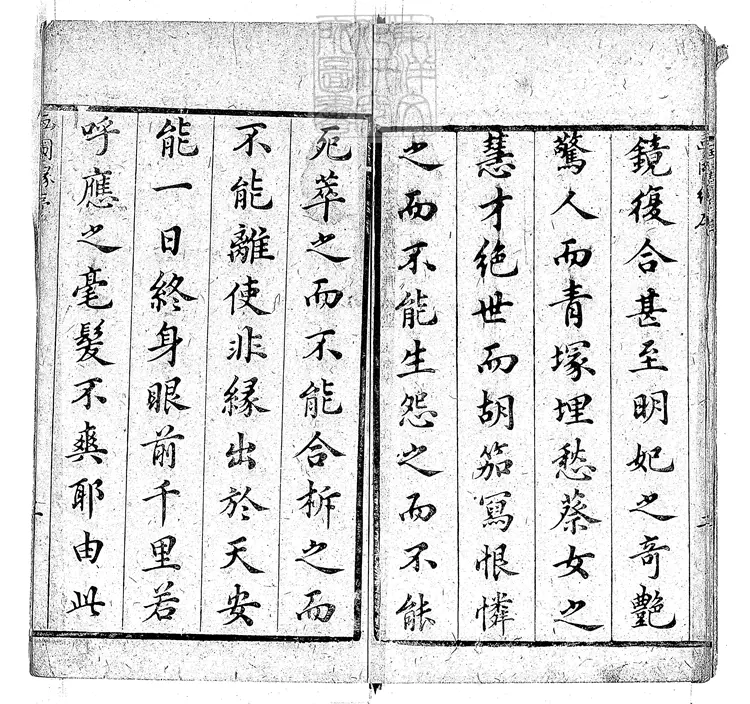 鏡復合甚至明妃之奇艷
驚人而青塚埋愁蔡女之
慧才絶世而胡笳寫恨憐
之而不能生怨之而不能
死萃之而不能合柝之而
不能離使非緣出於天安
能一日終身眼前千里若
呼應之毫髮不爽耶由此
二